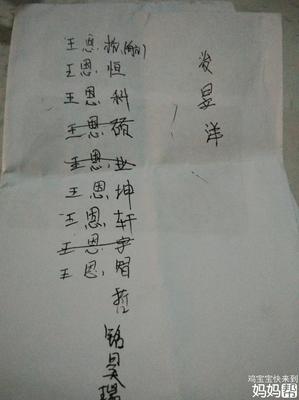 王恩
王恩恒
王恩科
王恩硕
王恩业
王恩坤
王恩轩
王恩宇
王恩智
哲
铭昊瑞
昱洋
鸡宝宝快来到
妈妈帮